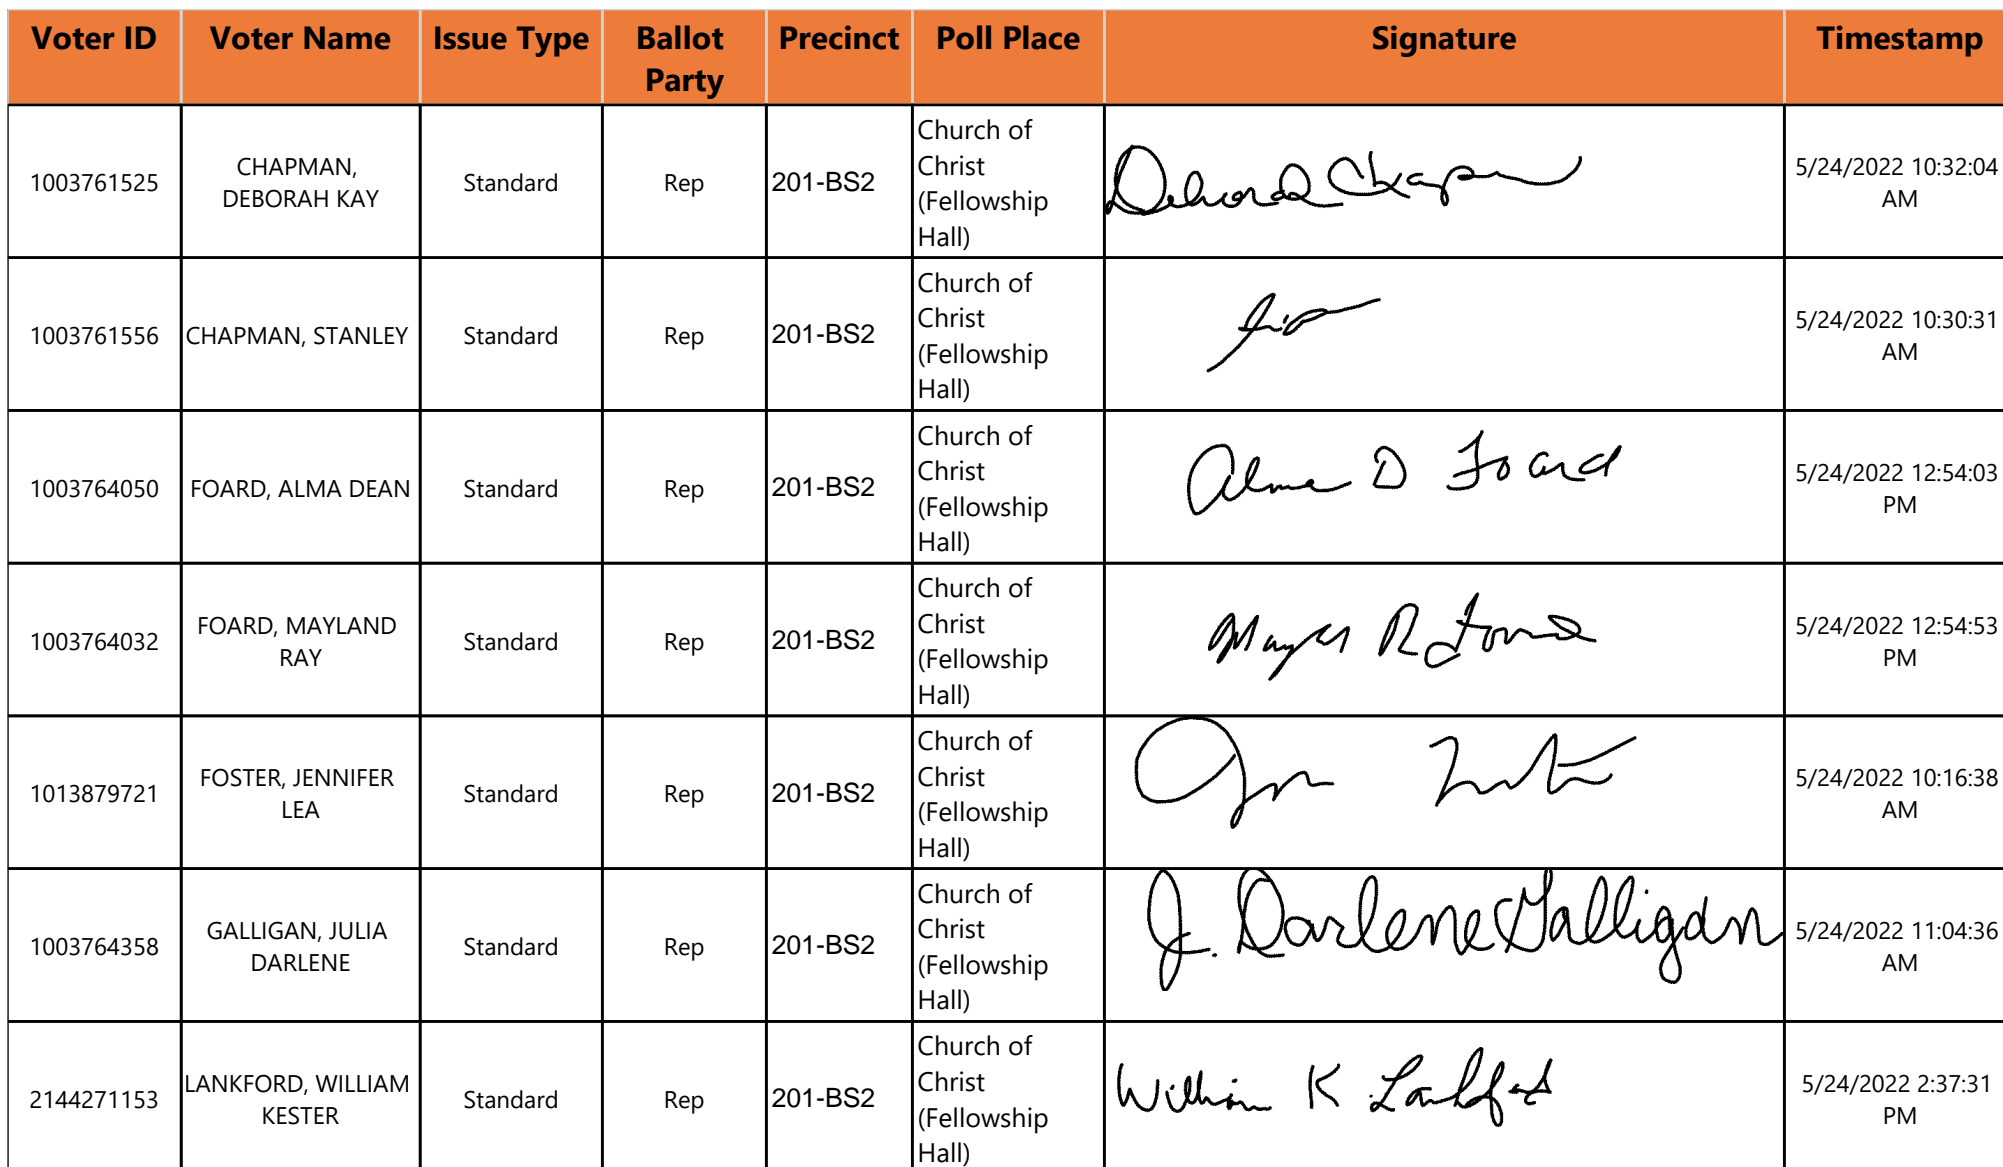 Voter ID Voter Name Issue Type Ballot Party Precinct Poll Place Signature Timestamp
1003761525 CHAPMAN, DEBORAH KAY Standard Rep 201-BS2 Church of Christ (Fellowship Hall) Deborah Chapman 5/24/2022 10:32:04 AM
1003761556 CHAPMAN, STANLEY Standard Rep 201-BS2 Church of Christ (Fellowship Hall) 5/24/2022 10:30:31 AM
1003764050 FOARD, ALMA DEAN Standard Rep 201-BS2 Church of Christ (Fellowship Hall) Alma D Foard 5/24/2022 12:54:03 PM
1003764032 FOARD, MAYLAND RAY Standard Rep 201-BS2 Church of Christ (Fellowship Hall) R Foard 5/24/2022 12:54:53 PM
1013879721 FOSTER, JENNIFER LEA Standard Rep 201-BS2 Church of Christ (Fellowship Hall) 5/24/2022 10:16:38 AM
1003764358 GALLIGAN, JULIA DARLENE Standard Rep 201-BS2 Church of Christ (Fellowship Hall) J. Darlene Galligan 5/24/2022 11:04:36 AM
2144271153 LANKFORD, WILLIAM KESTER Standard Rep 201-BS2 Church of Christ (Fellowship Hall) William K Lankford 5/24/2022 2:37:31 PM